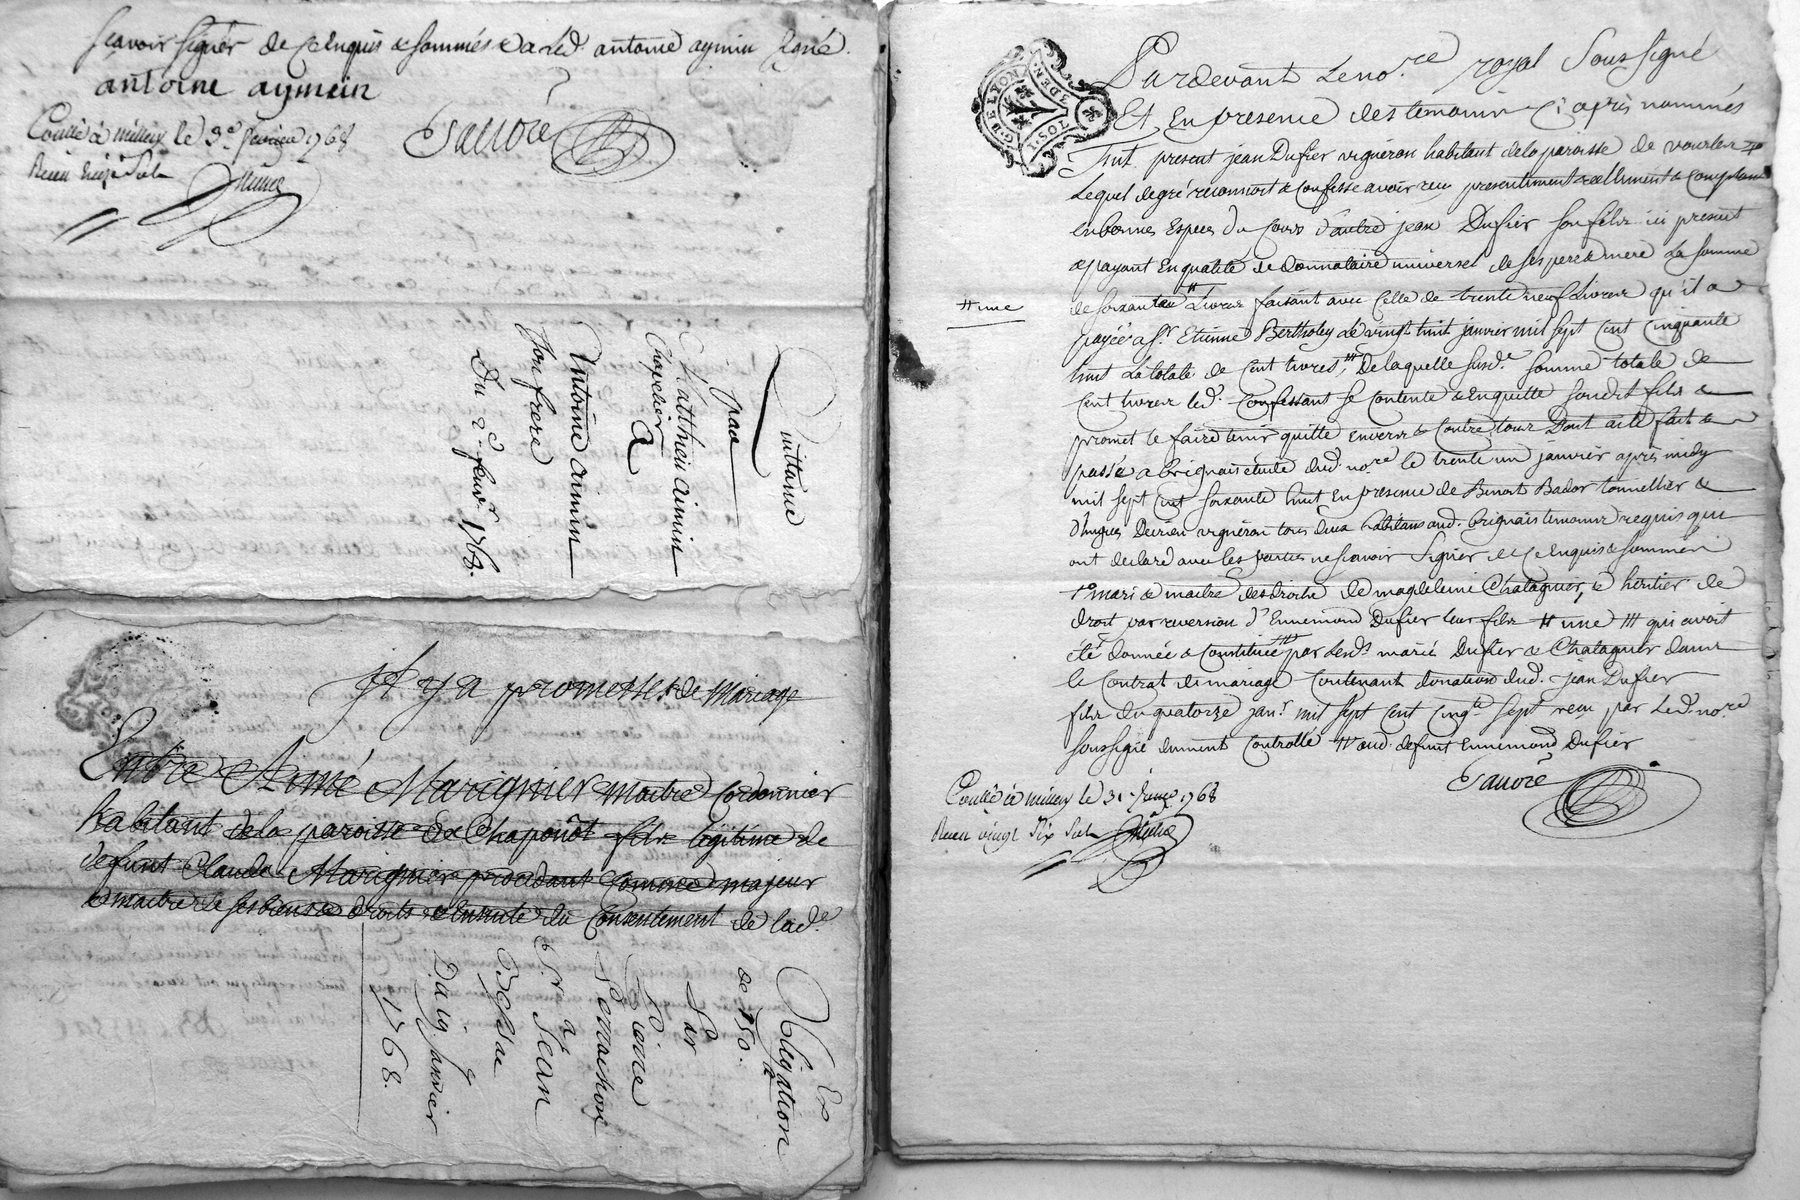 sçavoir signer de ce enquis & sommés & a led. antoine aymin signé.
antoine aymein
Conllé à millery le 3e fevrier 1768
Reçu treize sols
Quittance
par
Matthieu aimin
Chapelier
à
Antoine aimin
son frere
Du 2e fevr 1768.
Il y a promesses de Mariage
Entre Aimé Marignier maitre Cordonnier
habitant de la paroisse de Chaponôt fils légitime de
defunt Claude Marignier procedant comme majeur
& maitre de ses biens & droits & ensuite du Consentement de lad.e
Ex
Obligation
de 150.
Par
Pierre
à
Sr. Jean
Du 19 janvier
1768.
Pardevant le no.re royal soussigné
Et En presence des temoins Ci après nommés
fut present jean Dufier vigneron habitant de la paroisse de vourles
Lequel de gré reconnoit & Confesse avoir reçu presentement & reellement & Comptant
en bonnes Especes du Cours d'autre jean Dufier son fils ici present
& payant En qualité de donnataire universel de ses pere & mere La somme
de soixante # Livres faisant avec Celle de trente neuf Livres qu'il a
# une
payée a Sr. Etienne Bertholey Le vingt huit janvier mil sept cent cinquante
huit La totale de Cent livres, De laquelle susd.e somme totale de
Cent livres led. Confessant se Contente & En quitte sondit fils &
promet le faire tenir quitte envers & Contre tous Dont acte fait &
passé a brignais étude dud. no.re le trente un janvier après midy
mil sept cent soixante huit En presence de Benoit Bador tonnellier &
d'hugues vigneron tous deux habitans aud. brignais temoins requis qui
ont declaré avec les parties ne scavoir signer de Ce Enquis & sommés
mari & maitre des droits de magdeleine Chatagner, & héritier de
droit par reversion d'Ennemond Dufier leur fils # une ## qui avoit
été donnée & Constituée par lesds. mariés Dufier & Chatagner dans
le Contrat de mariage Contenant donation dud. jean Dufier
fils du quatorze janr. mil sept cent cinqte. sept reçu par Led. no.re
soussigné dument Controllé # aud. defunt Ennemond Dufier
Conllé à millery le 31 janvr 1768
Reçu vingt six sols